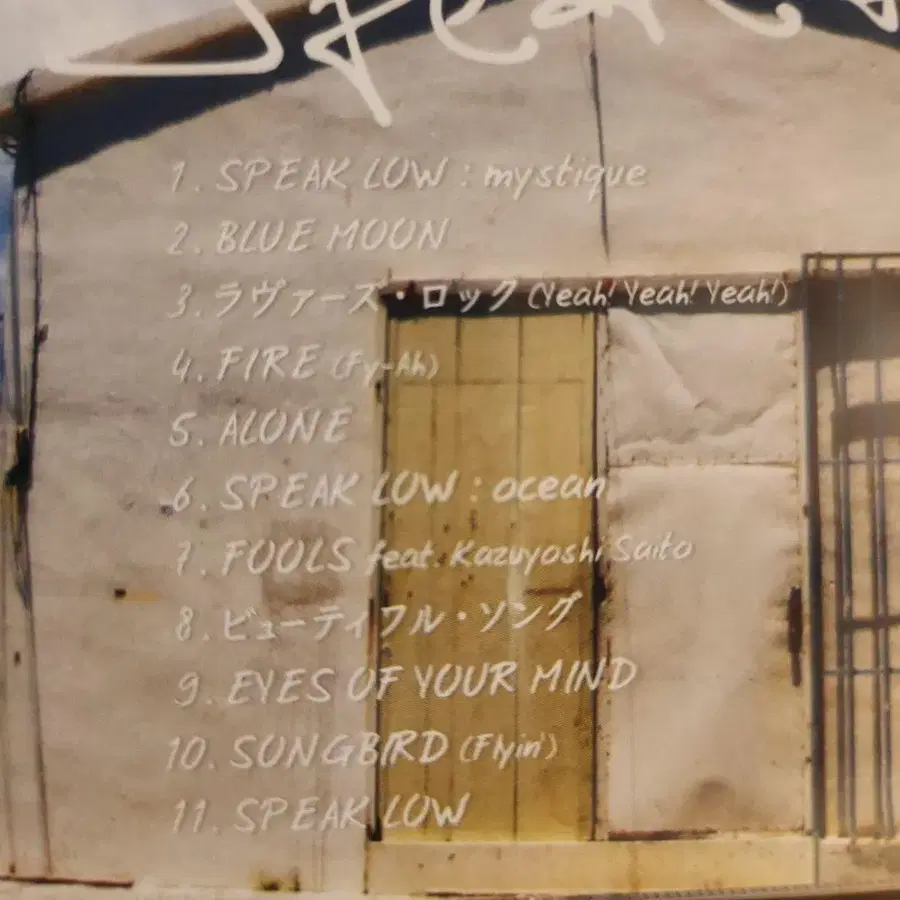 SPEAK
1. SPEAK LOW : mystique
2. BLUE MOON
3. ラヴァーズ・ロック (Yeah! Yeah! Yeah!)
4. FIRE (Fy-Ah)
5. ALONE
6. SPEAK LOW : ocean
7. FOOLS feat. Kazuyoshi Saito
8. ビューティフル・ソング
9. EYES OF YOUR MIND
10. SONGBIRD (Flyin')
11. SPEAK LOW